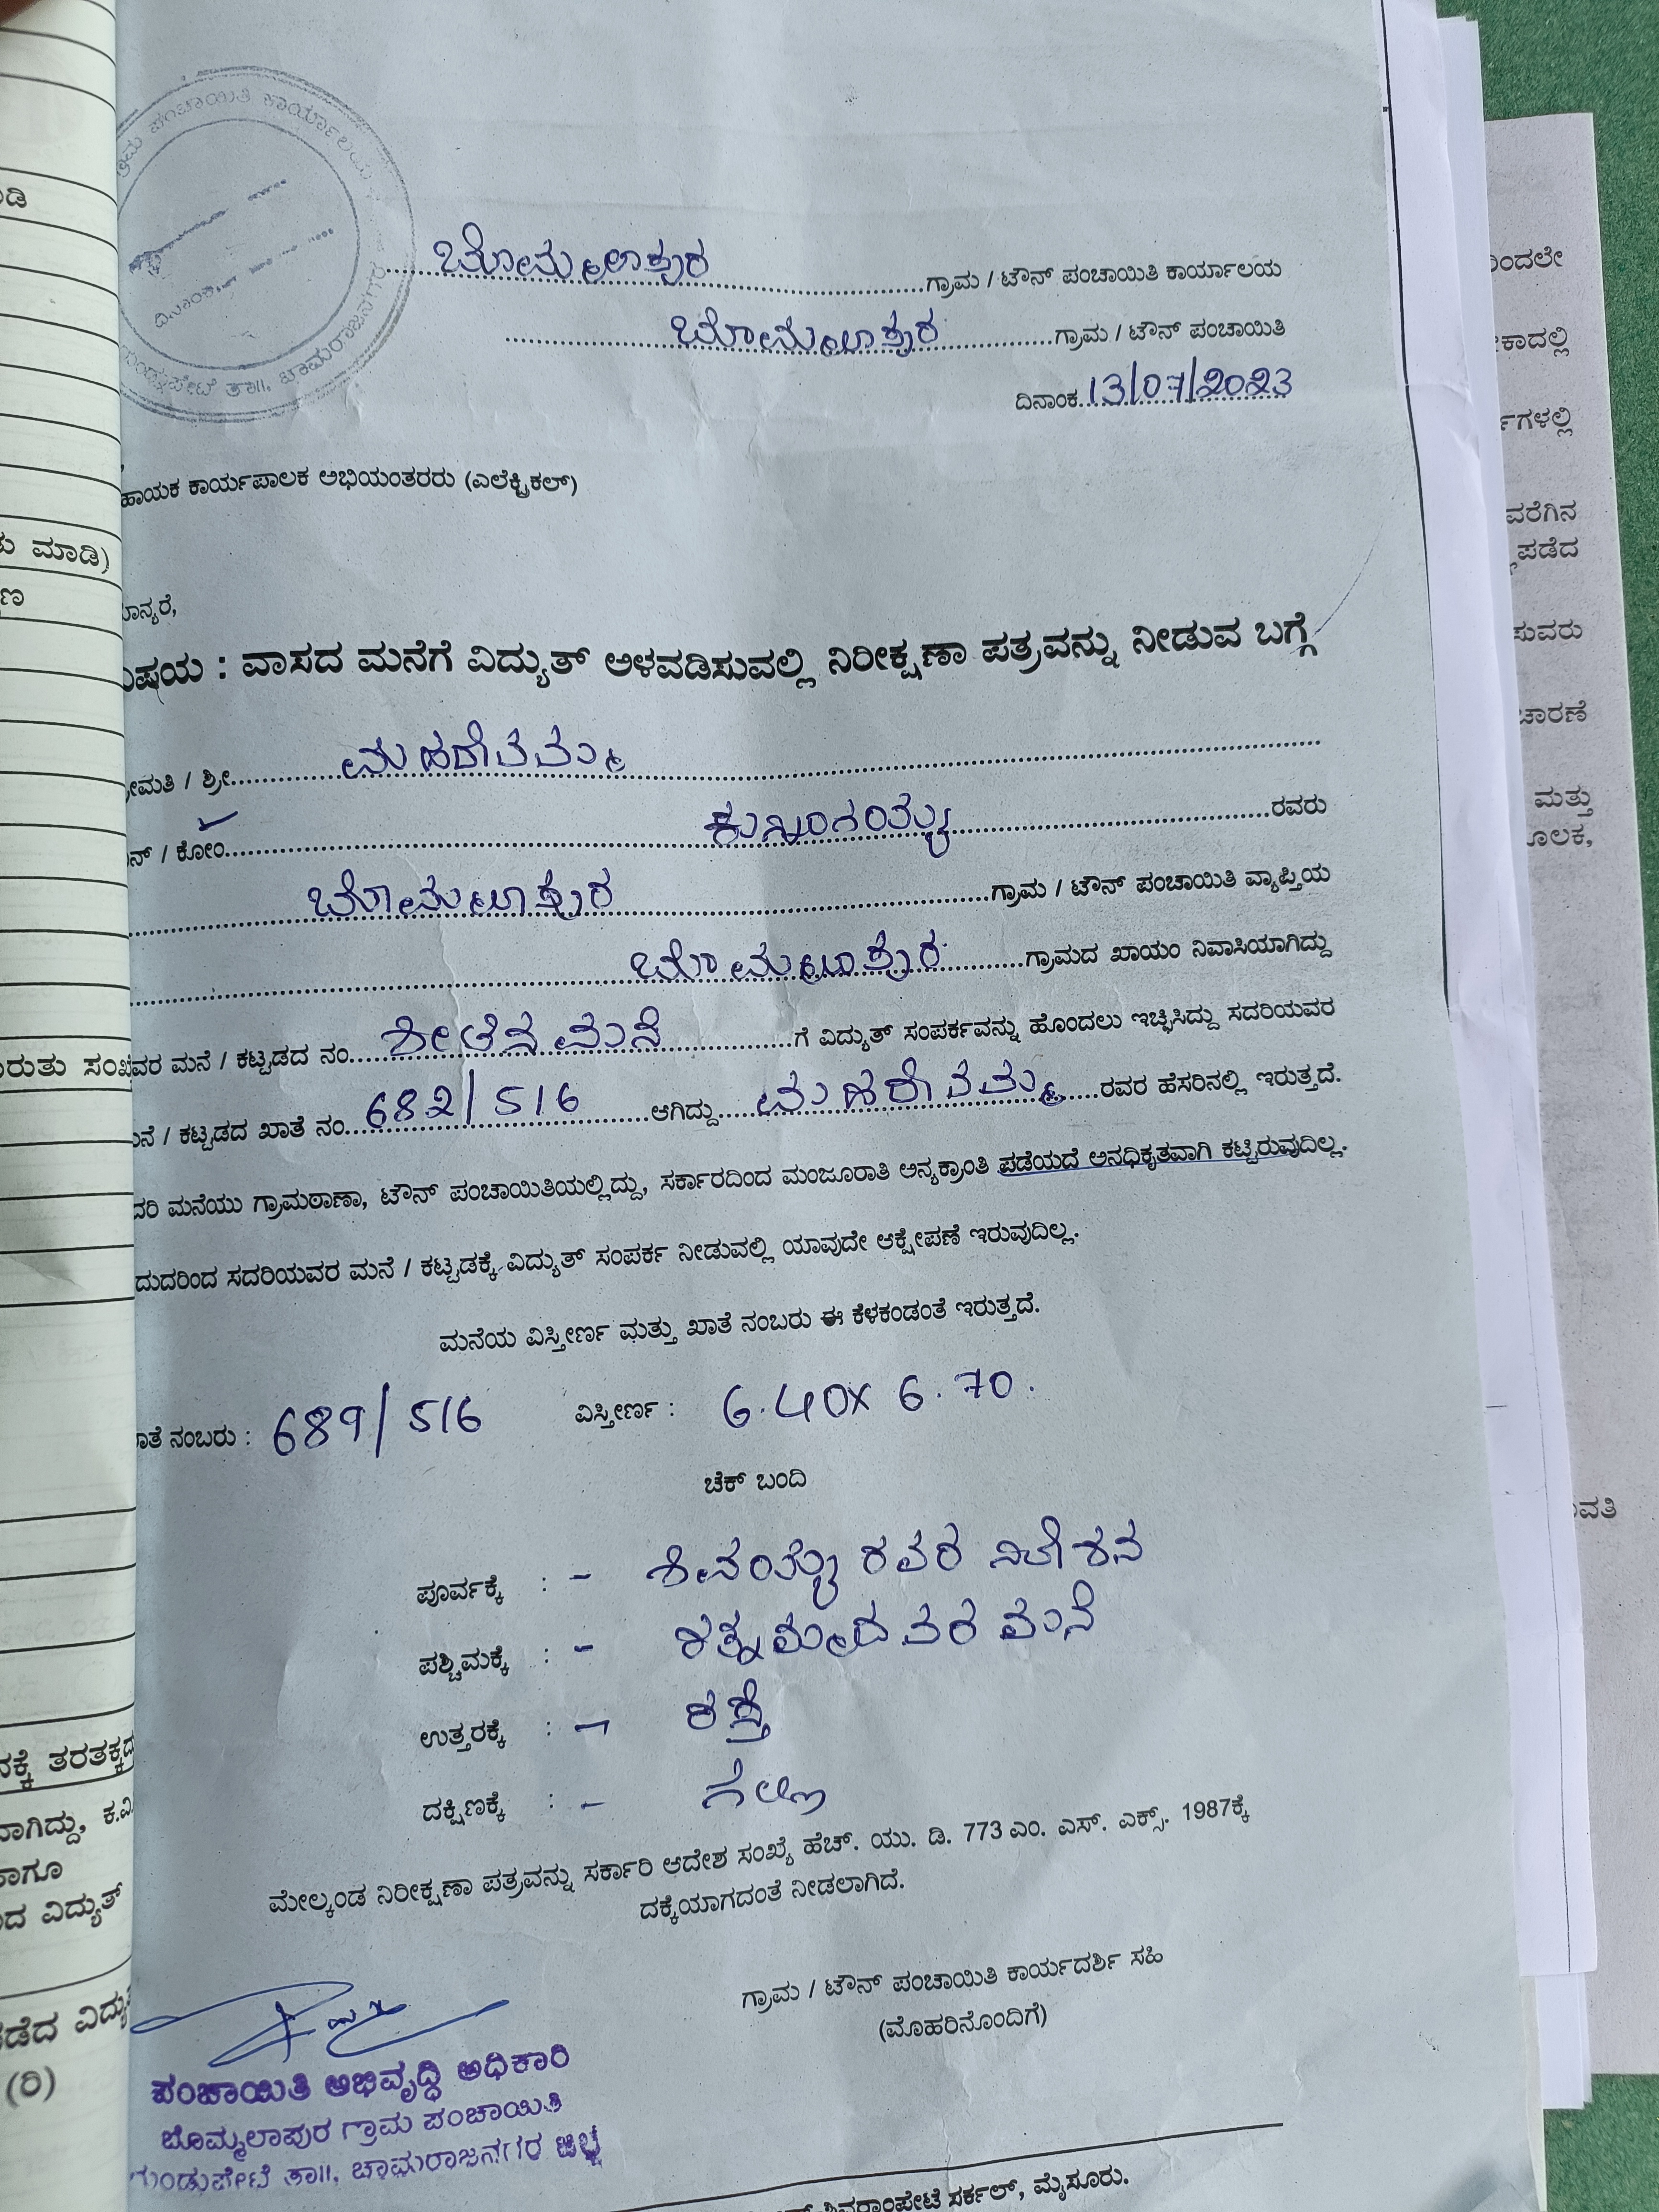 ಗ್ರಾಮ ಪಂಚಾಯಿತಿ ಕಾರ್ಯಾಲಯ
ದಿನಾಂಕ
ಗುಂಡ್ಲುಪೇಟೆ ತಾ||. ಚಾಮರಾಜನಗರ
ಬೊಮ್ಮಲಾಪುರ ಗ್ರಾಮ / ಟೌನ್ ಪಂಚಾಯಿತಿ ಕಾರ್ಯಾಲಯ
ಬೊಮ್ಮಲಾಪುರ ಗ್ರಾಮ / ಟೌನ್ ಪಂಚಾಯಿತಿ
ದಿನಾಂಕ 13/07/2023
ಹಾಯಕ ಕಾರ್ಯಪಾಲಕ ಅಭಿಯಂತರರು (ಎಲೆಕ್ಟ್ರಿಕಲ್)
ಮಾನ್ಯರೆ,
ವಿಷಯ : ವಾಸದ ಮನೆಗೆ ವಿದ್ಯುತ್ ಅಳವಡಿಸುವಲ್ಲಿ ನಿರೀಕ್ಷಣಾ ಪತ್ರವನ್ನು ನೀಡುವ ಬಗ್ಗೆ
ಶ್ರೀಮತಿ / ಶ್ರೀ ಮಹದೇವಮ್ಮ
ಬಿನ್ / ಕೋಂ ರವರು
ಬೊಮ್ಮಲಾಪುರ ಗ್ರಾಮ / ಟೌನ್ ಪಂಚಾಯಿತಿ ವ್ಯಾಪ್ತಿಯ
ಬೊಮ್ಮಲಾಪುರ ಗ್ರಾಮದ ಖಾಯಂ ನಿವಾಸಿಯಾಗಿದ್ದು
ವರ ಮನೆ / ಕಟ್ಟಡದ ನಂ. ಶೀಟಿನ ಮನೆ ಗೆ ವಿದ್ಯುತ್ ಸಂಪರ್ಕವನ್ನು ಹೊಂದಲು ಇಚ್ಛಿಸಿದ್ದು ಸದರಿಯವರ
ಮನೆ / ಕಟ್ಟಡದ ಖಾತೆ ನಂ. 682/516 ಆಗಿದ್ದು ಮಹದೇವಮ್ಮ ರವರ ಹೆಸರಿನಲ್ಲಿ ಇರುತ್ತದೆ.
ದರಿ ಮನೆಯು ಗ್ರಾಮಠಾಣಾ, ಟೌನ್ ಪಂಚಾಯಿತಿಯಲ್ಲಿದ್ದು, ಸರ್ಕಾರದಿಂದ ಮಂಜೂರಾತಿ ಅನ್ಯಕ್ರಾಂತಿ ಪಡೆಯದೆ ಅನಧಿಕೃತವಾಗಿ ಕಟ್ಟಿರುವುದಿಲ್ಲ.
ದುದರಿಂದ ಸದರಿಯವರ ಮನೆ / ಕಟ್ಟಡಕ್ಕೆ ವಿದ್ಯುತ್ ಸಂಪರ್ಕ ನೀಡುವಲ್ಲಿ ಯಾವುದೇ ಆಕ್ಷೇಪಣೆ ಇರುವುದಿಲ್ಲ.
ಮನೆಯ ವಿಸ್ತೀರ್ಣ ಮತ್ತು ಖಾತೆ ನಂಬರು ಈ ಕೆಳಕಂಡಂತೆ ಇರುತ್ತದೆ.
ಖಾತೆ ನಂಬರು : 689/516 ವಿಸ್ತೀರ್ಣ : 6.40X 6.70.
ಚೆಕ್ ಬಂದಿ
ಪೂರ್ವಕ್ಕೆ : - ಶಿವಯ್ಯ ರವರ ನಿವೇಶನ
ಪಶ್ಚಿಮಕ್ಕೆ : - ರತ್ನಮ್ಮರವರ ಮನೆ
ಉತ್ತರಕ್ಕೆ : - ರಸ್ತೆ
ದಕ್ಷಿಣಕ್ಕೆ : - ಗಲ್ಲಿ
ಮೇಲ್ಕಂಡ ನಿರೀಕ್ಷಣಾ ಪತ್ರವನ್ನು ಸರ್ಕಾರಿ ಆದೇಶ ಸಂಖ್ಯೆ ಹೆಚ್. ಯು. ಡಿ. 773 ಎಂ. ಎಸ್. ಎಕ್ಸ್. 1987ಕ್ಕೆ
ದಕ್ಕೆಯಾಗದಂತೆ ನೀಡಲಾಗಿದೆ.
ಗ್ರಾಮ / ಟೌನ್ ಪಂಚಾಯಿತಿ ಕಾರ್ಯದರ್ಶಿ ಸಹಿ
(ಮೊಹರಿನೊಂದಿಗೆ)
ಪಂಚಾಯಿತಿ ಅಭಿವೃದ್ಧಿ ಅಧಿಕಾರಿ
ಬೊಮ್ಮಲಾಪುರ ಗ್ರಾಮ ಪಂಚಾಯಿತಿ
ಗುಂಡ್ಲುಪೇಟೆ ತಾ||, ಚಾಮರಾಜನಗರ ಜಿಲ್ಲೆ
ಶಿವರಾಂಪೇಟೆ ಸರ್ಕಲ್, ಮೈಸೂರು.